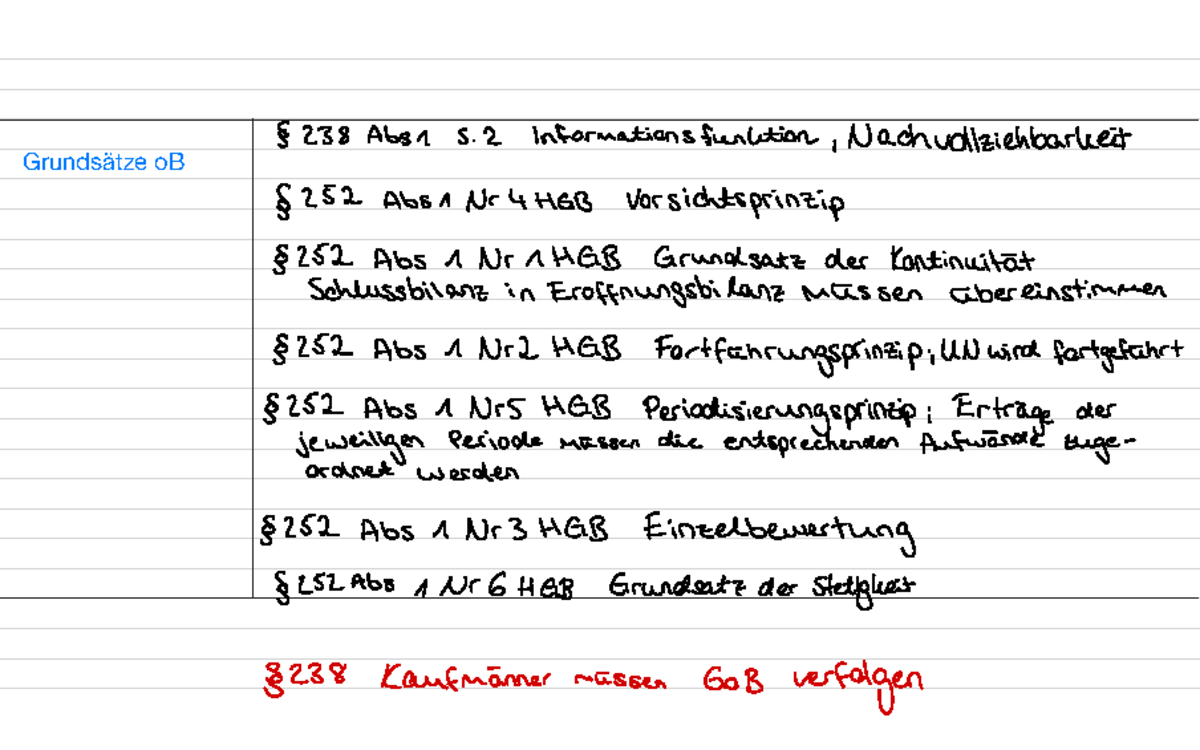 § 238 Abs 1 S. 2 Informationsfunktion, Nachvollziehbarkeit
Grundsätze oB
§ 252 Abs 1 Nr 4 HGB Vorsichtsprinzip
§ 252 Abs 1 Nr 1 HGB Grundsatz der Kontinuität
Schlussbilanz in Eröffnungsbilanz müssen übereinstimmen
§ 252 Abs 1 Nr 2 HGB Fortführungsprinzip; UN wird fortgeführt
§ 252 Abs 1 Nr 5 HGB Periodisierungsprinzip; Erträge der
jeweiligen Periode müssen die entsprechenden Aufwände zuge-
ordnet werden
§ 252 Abs 1 Nr 3 HGB Einzelbewertung
§ 252 Abs 1 Nr 6 HGB Grundsatz der Stetigkeit
§ 238 Kaufmänner müssen GoB verfolgen